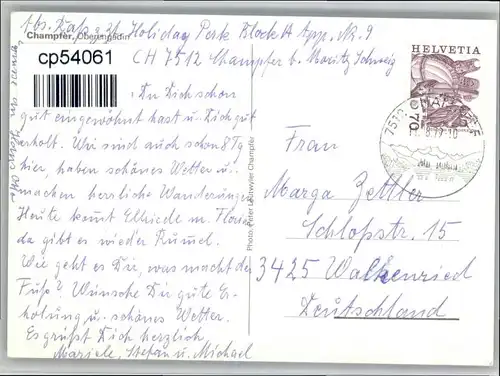 Abs. Kapp z. Zt. Holiday Park Block A App. Nr. 9
Champfèr, Oberengadin
CH 7512 Champfer b. Moritz Schweiz
cp54061
Du Dich schon
gut eingewöhnt hast u. Dich gut
erholt. Wir sind auch schon 8 Tg
hier, haben schönes Wetter u.
machen herrliche Wanderungen
Heute kommt Elfriede m. Florian
da gibt es wieder Rummel.
Wie geht es Dir, was macht der
Fuß? Wünsche Dir gute Er-
holung u. schönes Wetter.
Es grüßt Dich herzlich,
Mariele, Stefan u. Michael
Photo Peter Leuthwyler Champfèr
HELVETIA
70
7512 CHAMPFER
8.77.10
Frau
Marga Zettler
Schloßstr. 15
3425 Walkenried
Deutschland